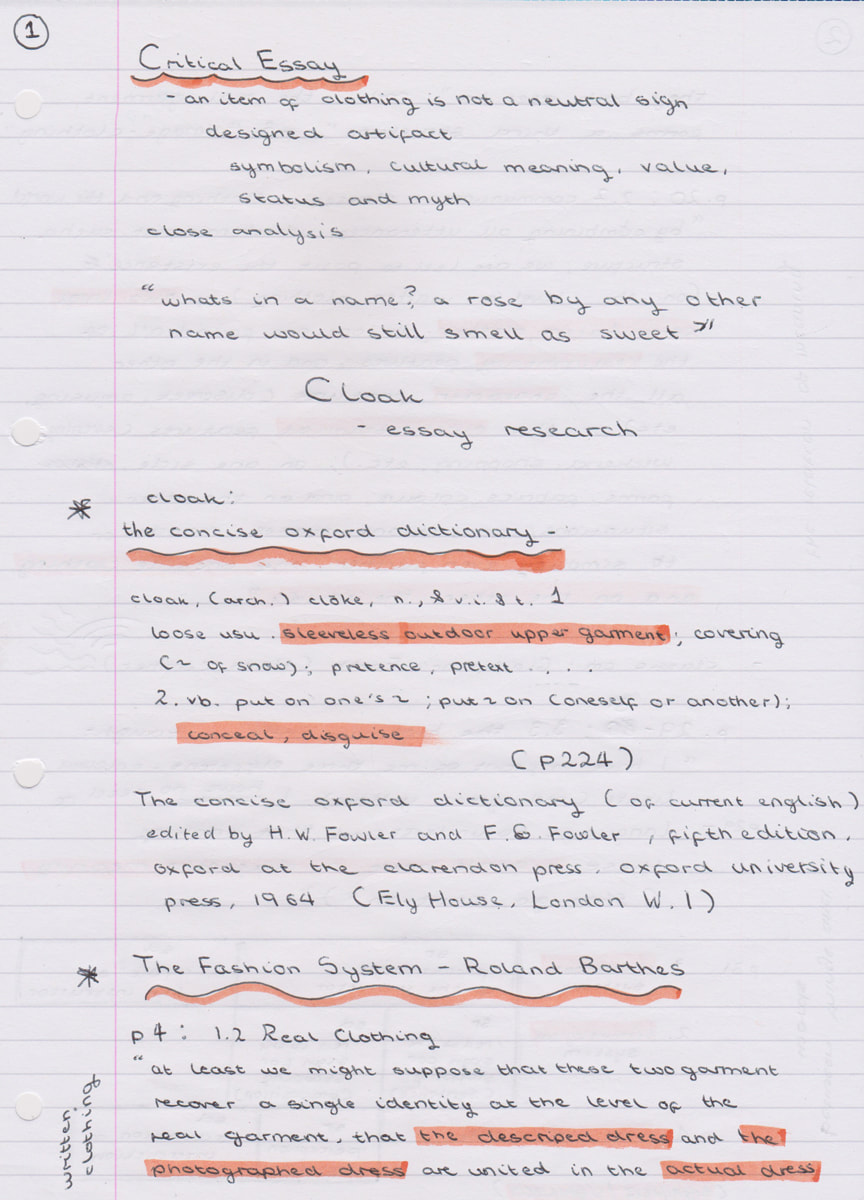 1
Critical Essay
- an item of clothing is not a neutral sign
designed artifact
symbolism, cultural meaning, value,
status and myth
close analysis
"whats in a name? a rose by any other
name would still smell as sweet"
Cloak
- essay research
* cloak:
the concise oxford dictionary -
cloak, (arch.) clōke, n., & v.i. & t. 1
loose usu. sleeveless outdoor upper garment; covering
(~ of snow); pretence, pretext . . . .
2. vb. put on one's ~ ; put ~ on (oneself or another);
conceal, disguise
(p224)
The concise oxford dictionary (of current english)
edited by H.W. Fowler and F.G. Fowler, fifth edition.
oxford at the clarendon press. oxford university
press, 1964 (Ely House, London W.1)
* The Fashion System - Roland Barthes
p4: 1.2 Real Clothing
"at least we might suppose that these two garment
recover a single identity at the level of the
real garment, that the descriped dress and the
photographed dress are united in the actual dress
written clothing